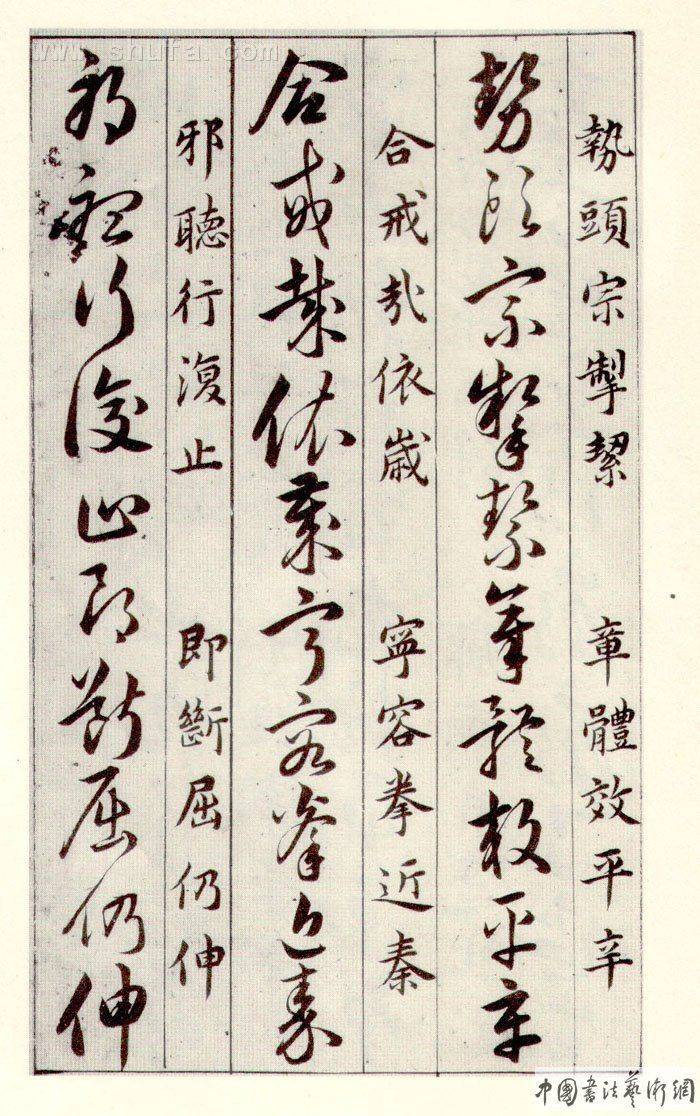 執頭宗掣絜 章體效平辛
勢頭宗掣絜章體效平辛
合戒㢤依歲 寧容拳近秦
合戒㢤依歲寧容拳近秦
邪聽行復止 即斷屈仍伸
邪聽行復止即斷屈仍伸
www.shufa.com
中國書法藝術網